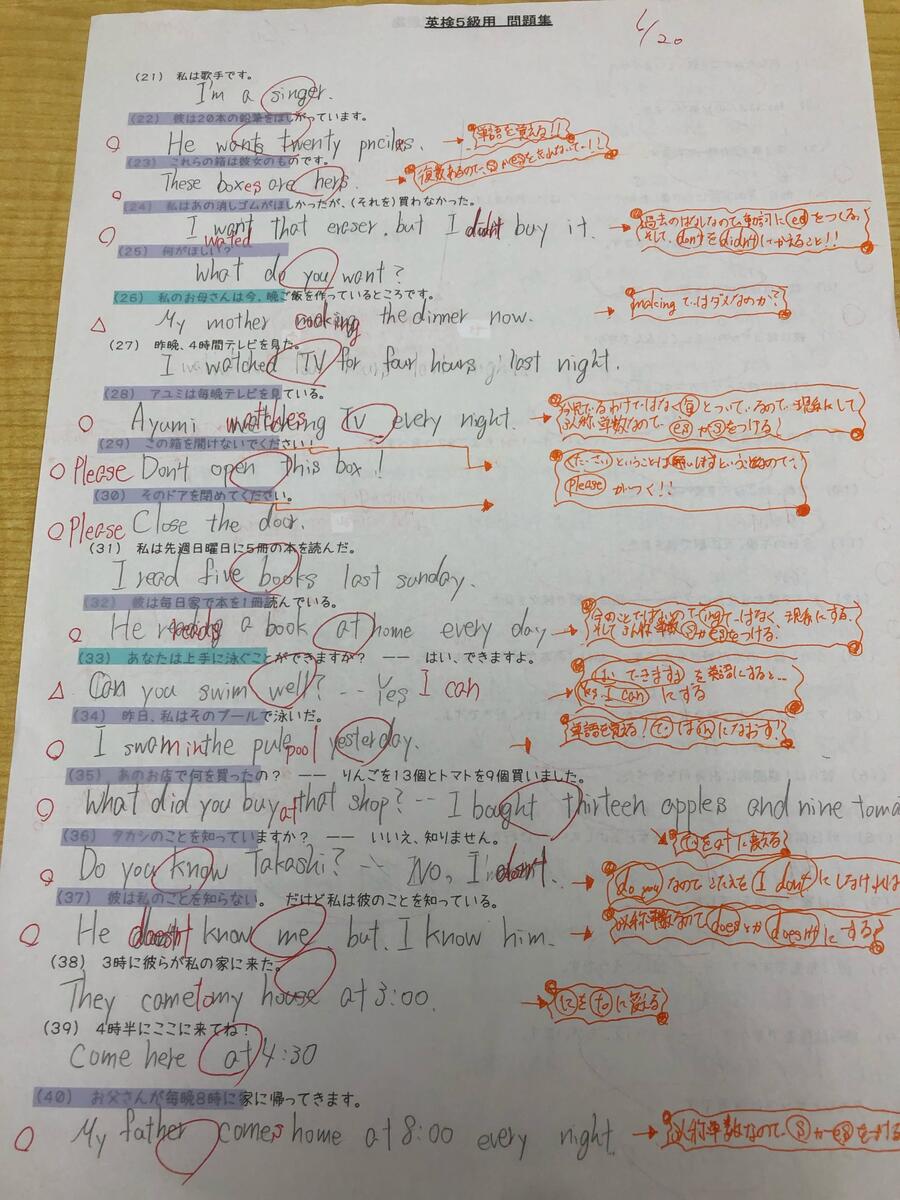 英検5級用 問題集
6/20
(21) 私は歌手です。
I'm a singer.
(22) 彼は20本の鉛筆をほしがっています。
He wants twenty pnciles. → 単語を覚える!!
(23) これらの箱は彼女のものです。
These boxes are hers. → 複数あるので、sかesをわすれないで!!
(24) 私はあの消しゴムがほしかったが、(それを)買わなかった。
I want that eraser. but I didn't buy it. → 過去のはなしなので動詞に ed をつくる。
wated
そして、don'tをdidn'tにかえること!!
(25) 何がほしい?
What do you want?
(26) 私のお母さんは今、晩ご飯を作っているところです。
My mother cooking the dinner now. → makingではダメなのか?
(27) 昨晩、4時間テレビを見た。
I watched TV for four hours last night.
(28) アユミは毎晩テレビを見ている。
Ayumi watches TV every night. → 今見ているわけではなく 毎 とついているので、現在にして
単数なので、esかsをつける!
(29) この箱を開けないでください!
Please Don't open this box!
ください ということは
please がつく!!
(30) そのドアを閉めてください。
Please Close the door.
(31) 私は先週日曜日に5冊の本を読んだ。
I read five books last sunday.
(32) 彼は毎日家で本を1冊読んでいる。
He reads a book at home every day → 今のことではないので ingではなく、現在にする。
そして さんにん単数 sかesをつける。
(33) あなたは上手に泳ぐことができますか? —— はい、できますよ。
Can you swim well? -- Yes I can → はい、できますよ を英語にすると…
Yes, I can にする
(34) 昨日、私はそのプールで泳いだ。
I swam in the pule pool yesterday. → 単語を覚える! で は in になおす!
(35) あのお店で何を買ったの? —— りんごを13個とトマトを9個買いました。
What did you buy at that shop? -- I bought thirteen apples and nine toma
→ で を at に変える
(36) タカシのことを知っていますか? —— いいえ、知りません。
Do you know Takashi? -- No, I don't. → do you なのでこたえを I don't にしなければ
(37) 彼は私のことを知らない。 だけど私は彼のことを知っている。
He doesn't know me but. I know him. → 単数なので doesとか doesn't にする
(38) 3時に彼らが私の家に来た。
They came to my house at 3:00. → に を to に変える
(39) 4時半にここに来てね!
Come here at 4:30
(40) お父さんが毎晩8時に家に帰ってきます。
My father comes home at 8:00 every night. → 単数なので、sかesをつける